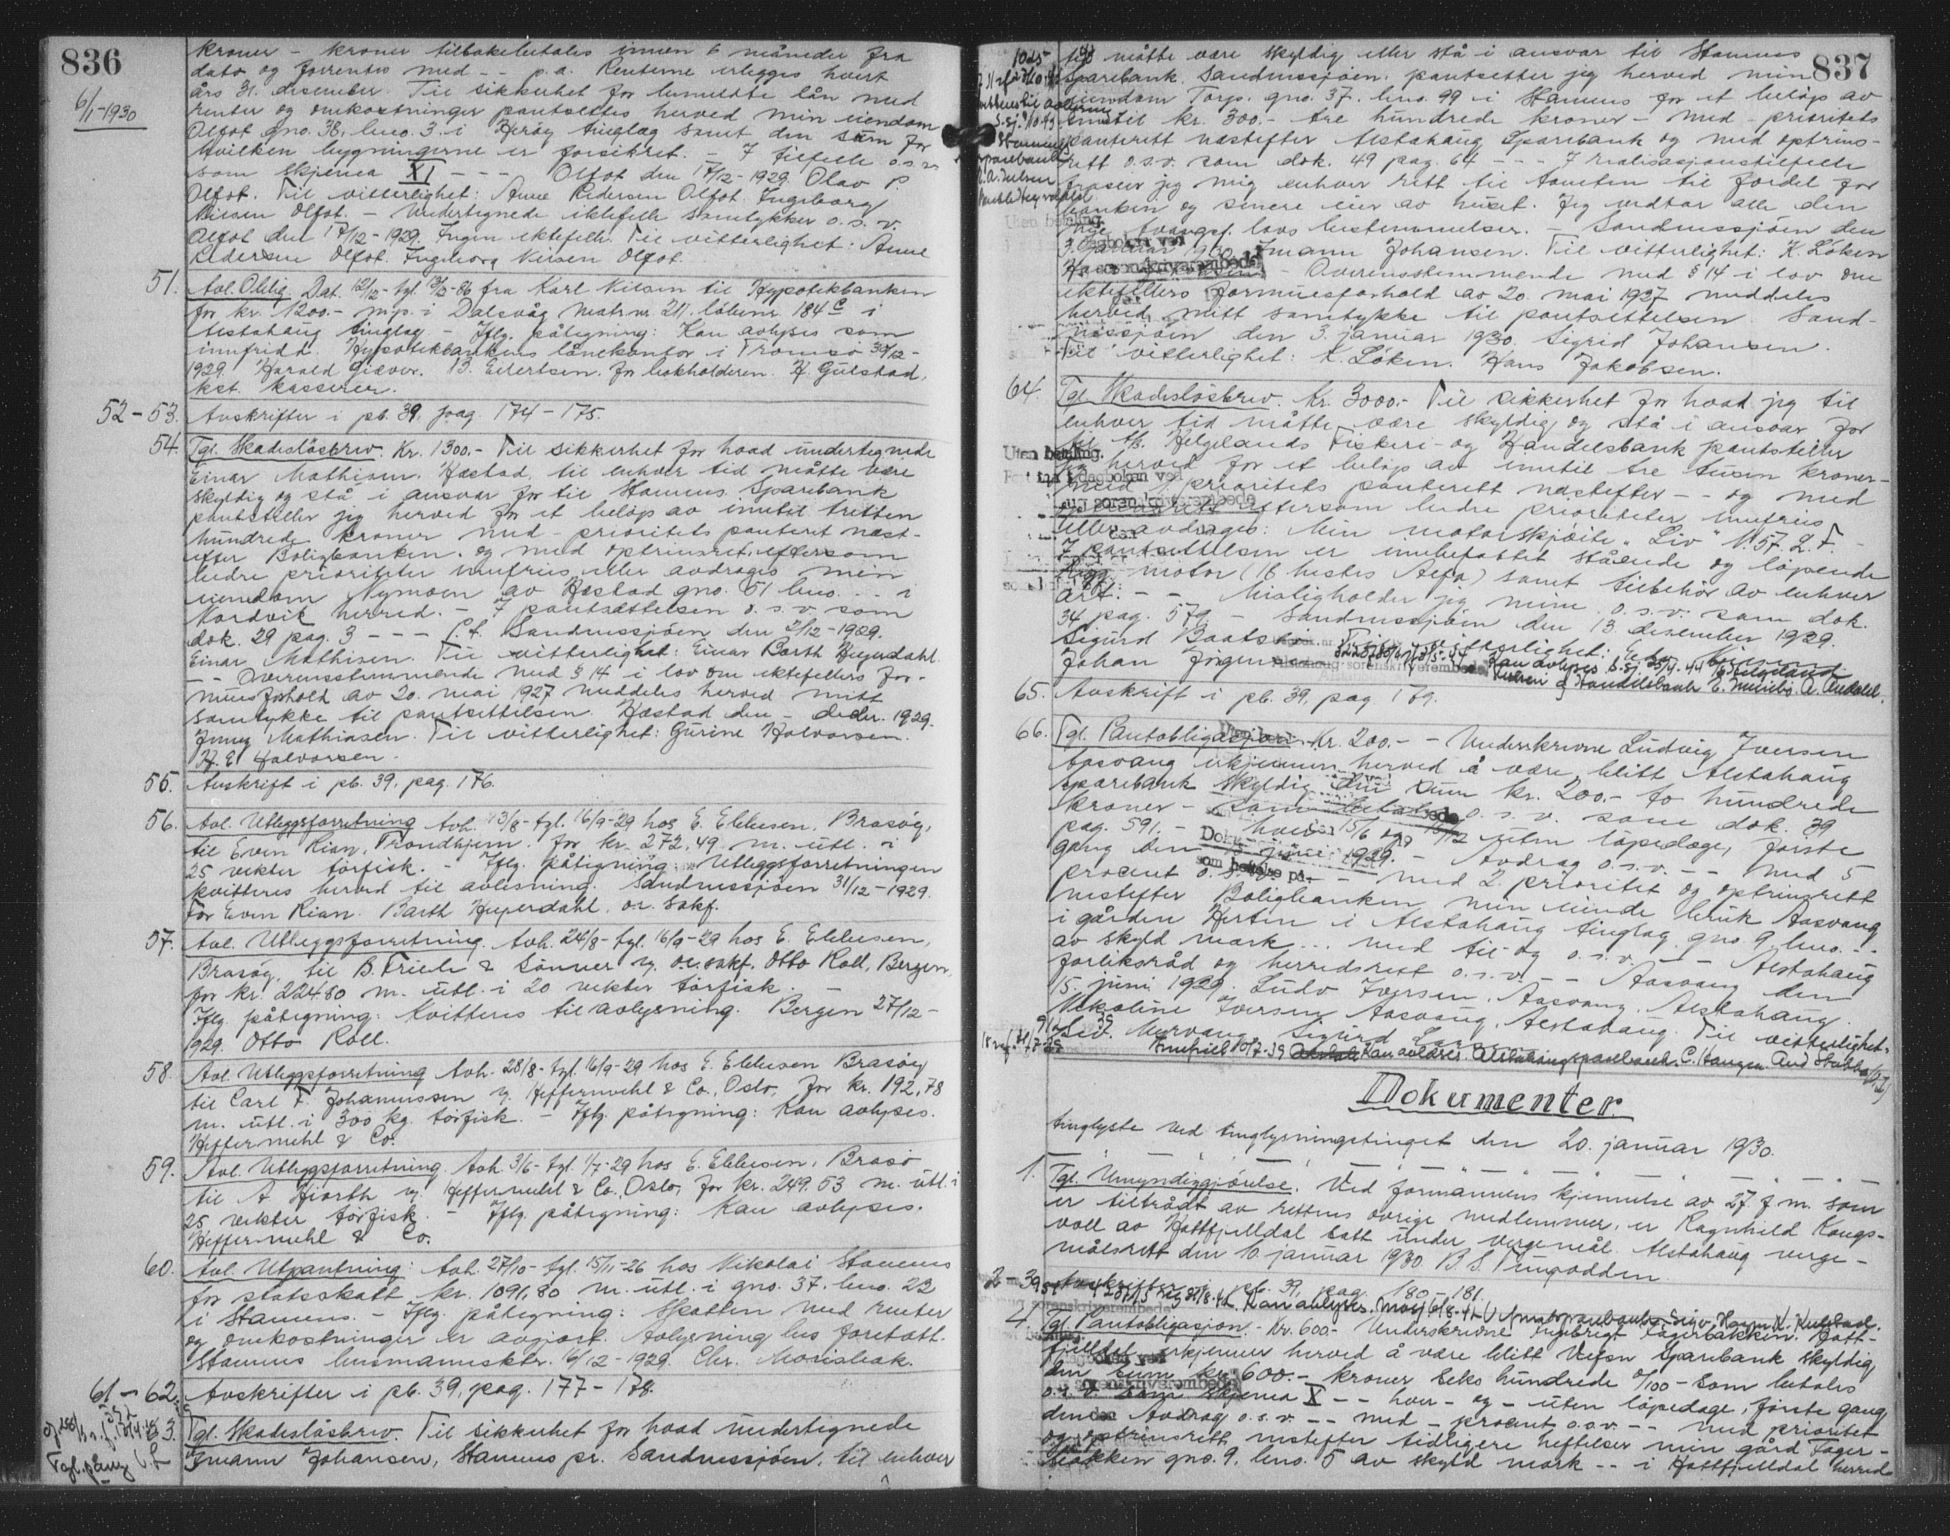 836
6/1-1930
kroner - kroner tilbakebetales innen 6 måneder fra
dato og forrentes med - - p.a. Renterne erlegges hvert
års 31. desember. Til sikkerhet for benevnte lån med
renter og omkostninger pantsettes herved min eiendom
Olfot gno. 38, bno. 3. i Herøy tinglag samt den sum for
hvilken bygningerne er forsikret. - I tilfelle o.s.v.
som skjema XI - - - Olfot den 17/12-1929. Olav P.
Olfot. Til vitterlighet: Anne Pedersen Olfot. Ingeborg
Nilsen Olfot. - Undertegnede ektefelle samtykker o.s.v.
Olfot den 17/12-1929. Ingen ektefelle. Til vitterlighet: Anne
Pedersen Olfot. Ingeborg Nilsen Olfot.
51. Avl. Oblig. Dat. 12/12- tgl. fra Karl Nilsen til Hypotekbanken
for kr. 1200.- m.p. i Dalsvåg matr. nr. 211. løbenr. 184 c i
Alstahaug tinglag. - Iflg. påtegning: Kan avlyses som
innfridd. Hypotekbankens lånekontor i Tromsø 30/12-
1929. Harald Giæver. B. Eilertsen. for bokholderen. H. Gulstad,
kst. kasserer.
52-53. Avskrifter i pb. 39. pag. 174-175.
54. Tgl. Skadesløsbrev. Kr. 1300.- Til sikkerhet for hvad undertegnede
Einar Mathisen. Hæstad, til enhver tid måtte være
skyldig og stå i ansvar for til Stamnes Sparebank
pantstiller jeg herved for et beløp av inntil tretten
hundrede kroner med - prioritets panterett næst-
efter Boligbanken. og med optrinsrett, eftersom
bedre prioriteter innfries eller avdrages min
eiendom Nymoen av Hæstad gno. 51 bno. ... i
Nordvik herred. - I pantsættelsen o.s.v. som
dok. 29 pag. 3 - - - p.t. Sandnessjøen den 2/12-1929.
Einar Mathisen. Til vitterlighet: Einar Barth Heyerdahl.
- - Overensstemmende med § 14 i lov om ektefellers for-
muesforhold av 20. mai 1927 meddeles herved mitt
samtykke til pantsettelsen. Hæstad den - desbr. 1929.
Jenny Mathiasen. Til vitterlighet: Gurine Halvorsen.
H. E. Halvorsen.
55. Avskrift i pb. 39, pag. 176.
56. Avl. Utleggsforretning Avh. 13/8- tgl. 16/9-29 hos E. Ebbesen, Brasøy,
til Even Rian, Trondhjem. for kr. 272,49 m. utl. i
25 vekter tørfisk. - Iflg. påtegning: Utleggsforretningen
kvitteres herved til avlesning. Sandnessjøen 31/12-1929.
For Even Rian. Barth Heyerdahl, o.r. sakf.
57. Avl. Utleggsforretning. Avh. 24/8- tgl. 16/9-29 hos E. Ebbesen,
Brasøy, til B. Friele & Sønner v. o.r. sakf. Otto Roll, Bergen,
for kr. 224.80 m. utl. i 20 vekter tørfisk. -
Iflg. påtegning: Kvitteres til avlysning. Bergen 27/12-
1929. Otto Roll.
58. Avl. Utleggsforretning Avh. 28/8- tgl. 16/9-29 hos E. Ebbesen Brasøy
til Carl F. Johannessen v. Heffermehl & Co, Oslo, for kr. 192,78
m. utl. i 300 kg. tørfisk. - Iflg. påtegning: Kan avlyses.
Heffermehl & Co.
59. Avl. Utleggsforretning. Avh. 3/6- tgl. 1/7-29 hos E. Ebbesen, Brasø
til A. Hjorth v. Heffermehl & Co, Oslo, for kr. 249.53 m. utl. i
25 vekter tørfisk. - Iflg. påtegning: Kan avlyses.
Heffermehl & Co.
60. Avl. Utpantning: Avh. 27/10- tgl. 15/11-26 hos Nikolai Stamnes
for statsskatt kr. 1091,80 m. utl. i gno. 37. bno. 22
i Stamnes. - Iflg. påtegning: Skatten med renter
og omkostninger er avgjort. Avlysning bes foretatt.
Stamnes lensmannsktr. 16/12-1929. Chr. Morisbak.
61-62. Avskrifter i pb. 39, pag. 177-178.
63. Tgl. Skadesløsbrev. Til sikkerhet for hvad undertegnede
Imann Johansen, Stamnes pr. Sandnessjøen, til enhver
837
tid måtte være skyldig eller stå i ansvar til Stamnes
Sparebank, Sandnessjøen, pantsetter jeg herved min
eiendom Torp. gno. 37. bno. 99 i Stamnes for et beløp av
inntil kr. 300.- tre hundrede kroner - med - prioritets
panterett næstefter Alstahaug Sparebank og med optrins-
rett o.s.v. som dok. 49 pag. 64 - - - I realisasjonstilfelle
frasier jeg mig enhver rett til tomten til fordel for
banken og senere eier av huset. Jeg vedtar alle den
nye tvangsf. lovs bestemmelser. - Sandnessjøen den
3. januar 1930. Imann Johansen. Til vitterlighet: K. Løken
- Overensstemmende med § 14 i lov om
ektefellers formuesforhold av 20. mai 1927 meddeles
herved mitt samtykke til pantsettelsen. Sand-
nessjøen den 3. januar 1930. Sigrid Johansen.
Til vitterlighet: K. Løken. Hans Jakobsen.
64. Tgl. Skadesløsbrev. Kr. 3000.- Til sikkerhet for hvad jeg til
enhver tid måtte være skyldig og stå i ansvar for
til A/s. Helgelands Fiskeri- og Handelsbank pantstiller
jeg herved for et beløp av inntil tre tusen kroner-
med prioritets panterett næstefter - - og med
optrinsrett eftersom bedre prioriteter innfries
eller avdrages: Min motorskjøite "Liv" N. 57. L. F. -
I pantsettelsen er innbefattet stående og løpende
rigg - motor (16 hestes Alfa) samt tilbehør av enhver
art. - - Misligholder jeg mine o.s.v. som dok.
34 pag. 579. - Sandnessjøen den 13. desember 1929.
Sigurd Baatsv... Til vitterlighet:
Johan Jørgensen. Kan avlyses S.sj. A/s Helgeland
Fiskeri & Handelsbank
65. Avskrift i pb. 39, pag 179.
66. Tgl. Pantobligasjon. Kr. 200.- - Underskrevne Ludvig Iversen
Aasvang erkjenner herved å være blitt Alstahaug
Sparebank skyldig den sum kr. 200.- to hundrede
kroner - som betales o.s.v. som dok. 39
pag. 591.- hver 15/6 og 15/12 uten løpedage, første
gang den juni 1929. - Avdrag o.s.v. - - med 5
procent o.s.v. - - med 2. prioritet og optrinsrett
nestefter Boligbanken min eiende bruk Aasvang
i gården Hestn i Alstahaug tinglag gno. 9, bno. -
av skyld mark ... med til- og o.s.v. - - Alstahaug
forliksråd og herredsrett o.s.v. - - Aasvang den
15. juni 1929. Ludv. Iversen, Aasvang. Alstahaug.
Nikoline Iversen Aasvang, Alstahaug. Til vitterlighet:
Innfridd 10/7-39 Kan avlyses. Alstahaug sparebank. C. Hangen.
Dokumenter
tinglyste ved tinglysningstinget den 20. januar 1930.
1. Tgl. Umyndiggjørelse. Ved formannens kjennelse av 27. f.m. som
er tiltrådt av rettens øvrige medlemmer, er Ragnhild Kongs-
voll av Hattfjelldal satt under vergemål. Alstahaug verge-
målsrett den 10. januar 1930. B S Tungodden
2-3. Avskrifter i pb. 39, pag. 180-181.
4. Tgl. Pantobligasjon - Kr. 600.- Underskrevne Ingebrigt Fagerbakken. Hatt-
fjelldal erkjenner herved å være blitt Vefsn Sparebank skyldig
den sum kr. 600.- kroner seks hundrede 0/100 - som betales
o.s.v. som skjema X - - hver - og - uten løpedage, første gang
den - Avdrag o.s.v. - - med - procent o.s.v. - - med prioritet
og optrinsrett nestefter tidligere heftelser min gård Fager-
bakken gno. 9, bno. 5 av skyld mark - - i Hattfjelldal herred